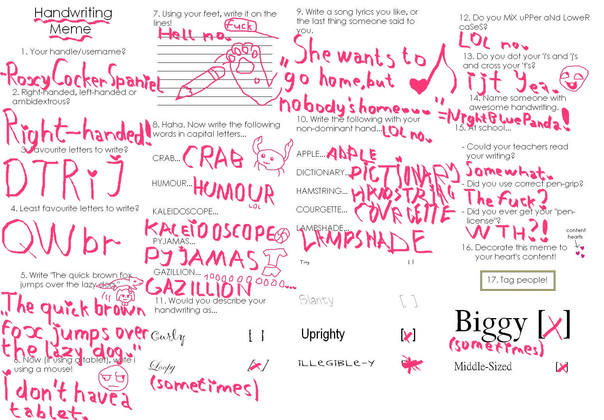 Handwriting
Meme
1. Your handle/username?
-RoxyCockerSpaniel
2. Right-handed, left-handed or
ambidextrous?
Right-handed!
3. Favourite letters to write?
DTRij
4. Least favourite letters to write?
QWbr
5. Write "The quick brown fox
jumps over the lazy dog
"The quick brown
fox jumps over
the lazy dog."
6. Now (if using a tablet), write i
using a mouse!
I don't have a
tablet.
7. Using your feet, write it on the
lines!
fuck
Hell no.
8. Haha. Now write the following
words in capital letters...
CRAB... CRAB
HUMOUR... HUMOUR
LOL
KALEIDOSCOPE...
KALEIDOOSCOPE
PYJAMAS...
PYJAMAS
GAZILLION...
GAZILLION
11. Would you describe your
handwriting as...
Curly [ ]
Loopy [x]
(sometimes)
9. Write a song lyrics you like, or
the last thing someone said to
you.
"She wants to
go home, but
nobody's home..."
10. Write the following with your
non-dominant hand...
LOL no.
APPLE... APPLE
DICTIONARY... DICTIONARY
HAMSTRING... HAMSTRING
COURGETTE... COURGETTE
LAMPSHADE...
LAMPSHADE
Tiny
Slanty [ ]
Uprighty [x]
ILLEGIBLE-Y
12. Do you MiX uPPer aNd LoweR
caSeS?
LOL no.
13. Do you dot your 'i's and 'j's
and cross your 't's?
ijt Yea.
14. Name someone with
awesome handwriting.
=NightBluePanda!
15. At school...
- Could your teachers
read your writing?
Somewhat.
- Did you use correct pen-grip?
The fuck?
- Did you ever get your "pen-
license"?
WTH?!
content
hearts
16. Decorate this meme to
your heart's content!
17. Tag people!
Biggy [x]
(sometimes)
Middle-Sized [x]